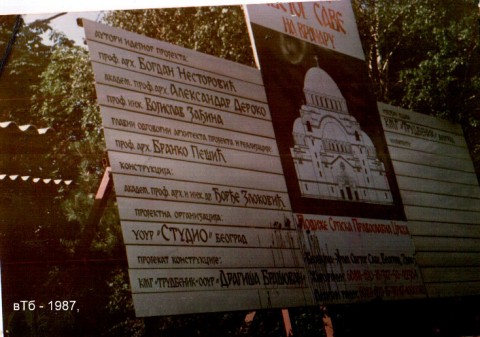 СВЕТОГ САВЕ
НА ВРАЧАРУ
АУТОРИ ИДЕЈНОГ ПРОЈЕКТА:
ПРОФ. АРХ. БОГДАН НЕСТОРОВИЋ
АКАДЕМ. ПРОФ. АРХ. АЛЕКСАНДАР ДЕРОКО
ПРОФ. ИНЖ. ВОЈИСЛАВ ЗАЂИНА
ГЛАВНИ ОДГОВОРНИ АРХИТЕКТА ПРОЈЕКТА И РЕАЛИЗАЦИЈЕ:
ПРОФ. АРХ. БРАНКО ПЕШИЋ
КОНСТРУКЦИЈА:
АКАДЕМ. ПРОФ. АРХ. И ИНЖ. ДР ЂОРЂЕ ЗЛОКОВИЋ
ПРОЈЕКТНА ОРГАНИЗАЦИЈА:
УОУР "СТУДИО" БЕОГРАД
ПРОЈЕКТ КОНСТРУКЦИЈЕ:
КМГ "ТРУДБЕНИК" ООУР "ДРАГИША БРАШОВАН"
КМГ "ТРУДБЕНИК"
СРПСКА ПРАВОСЛАВНА ЦРКВА
вТб - 1987,